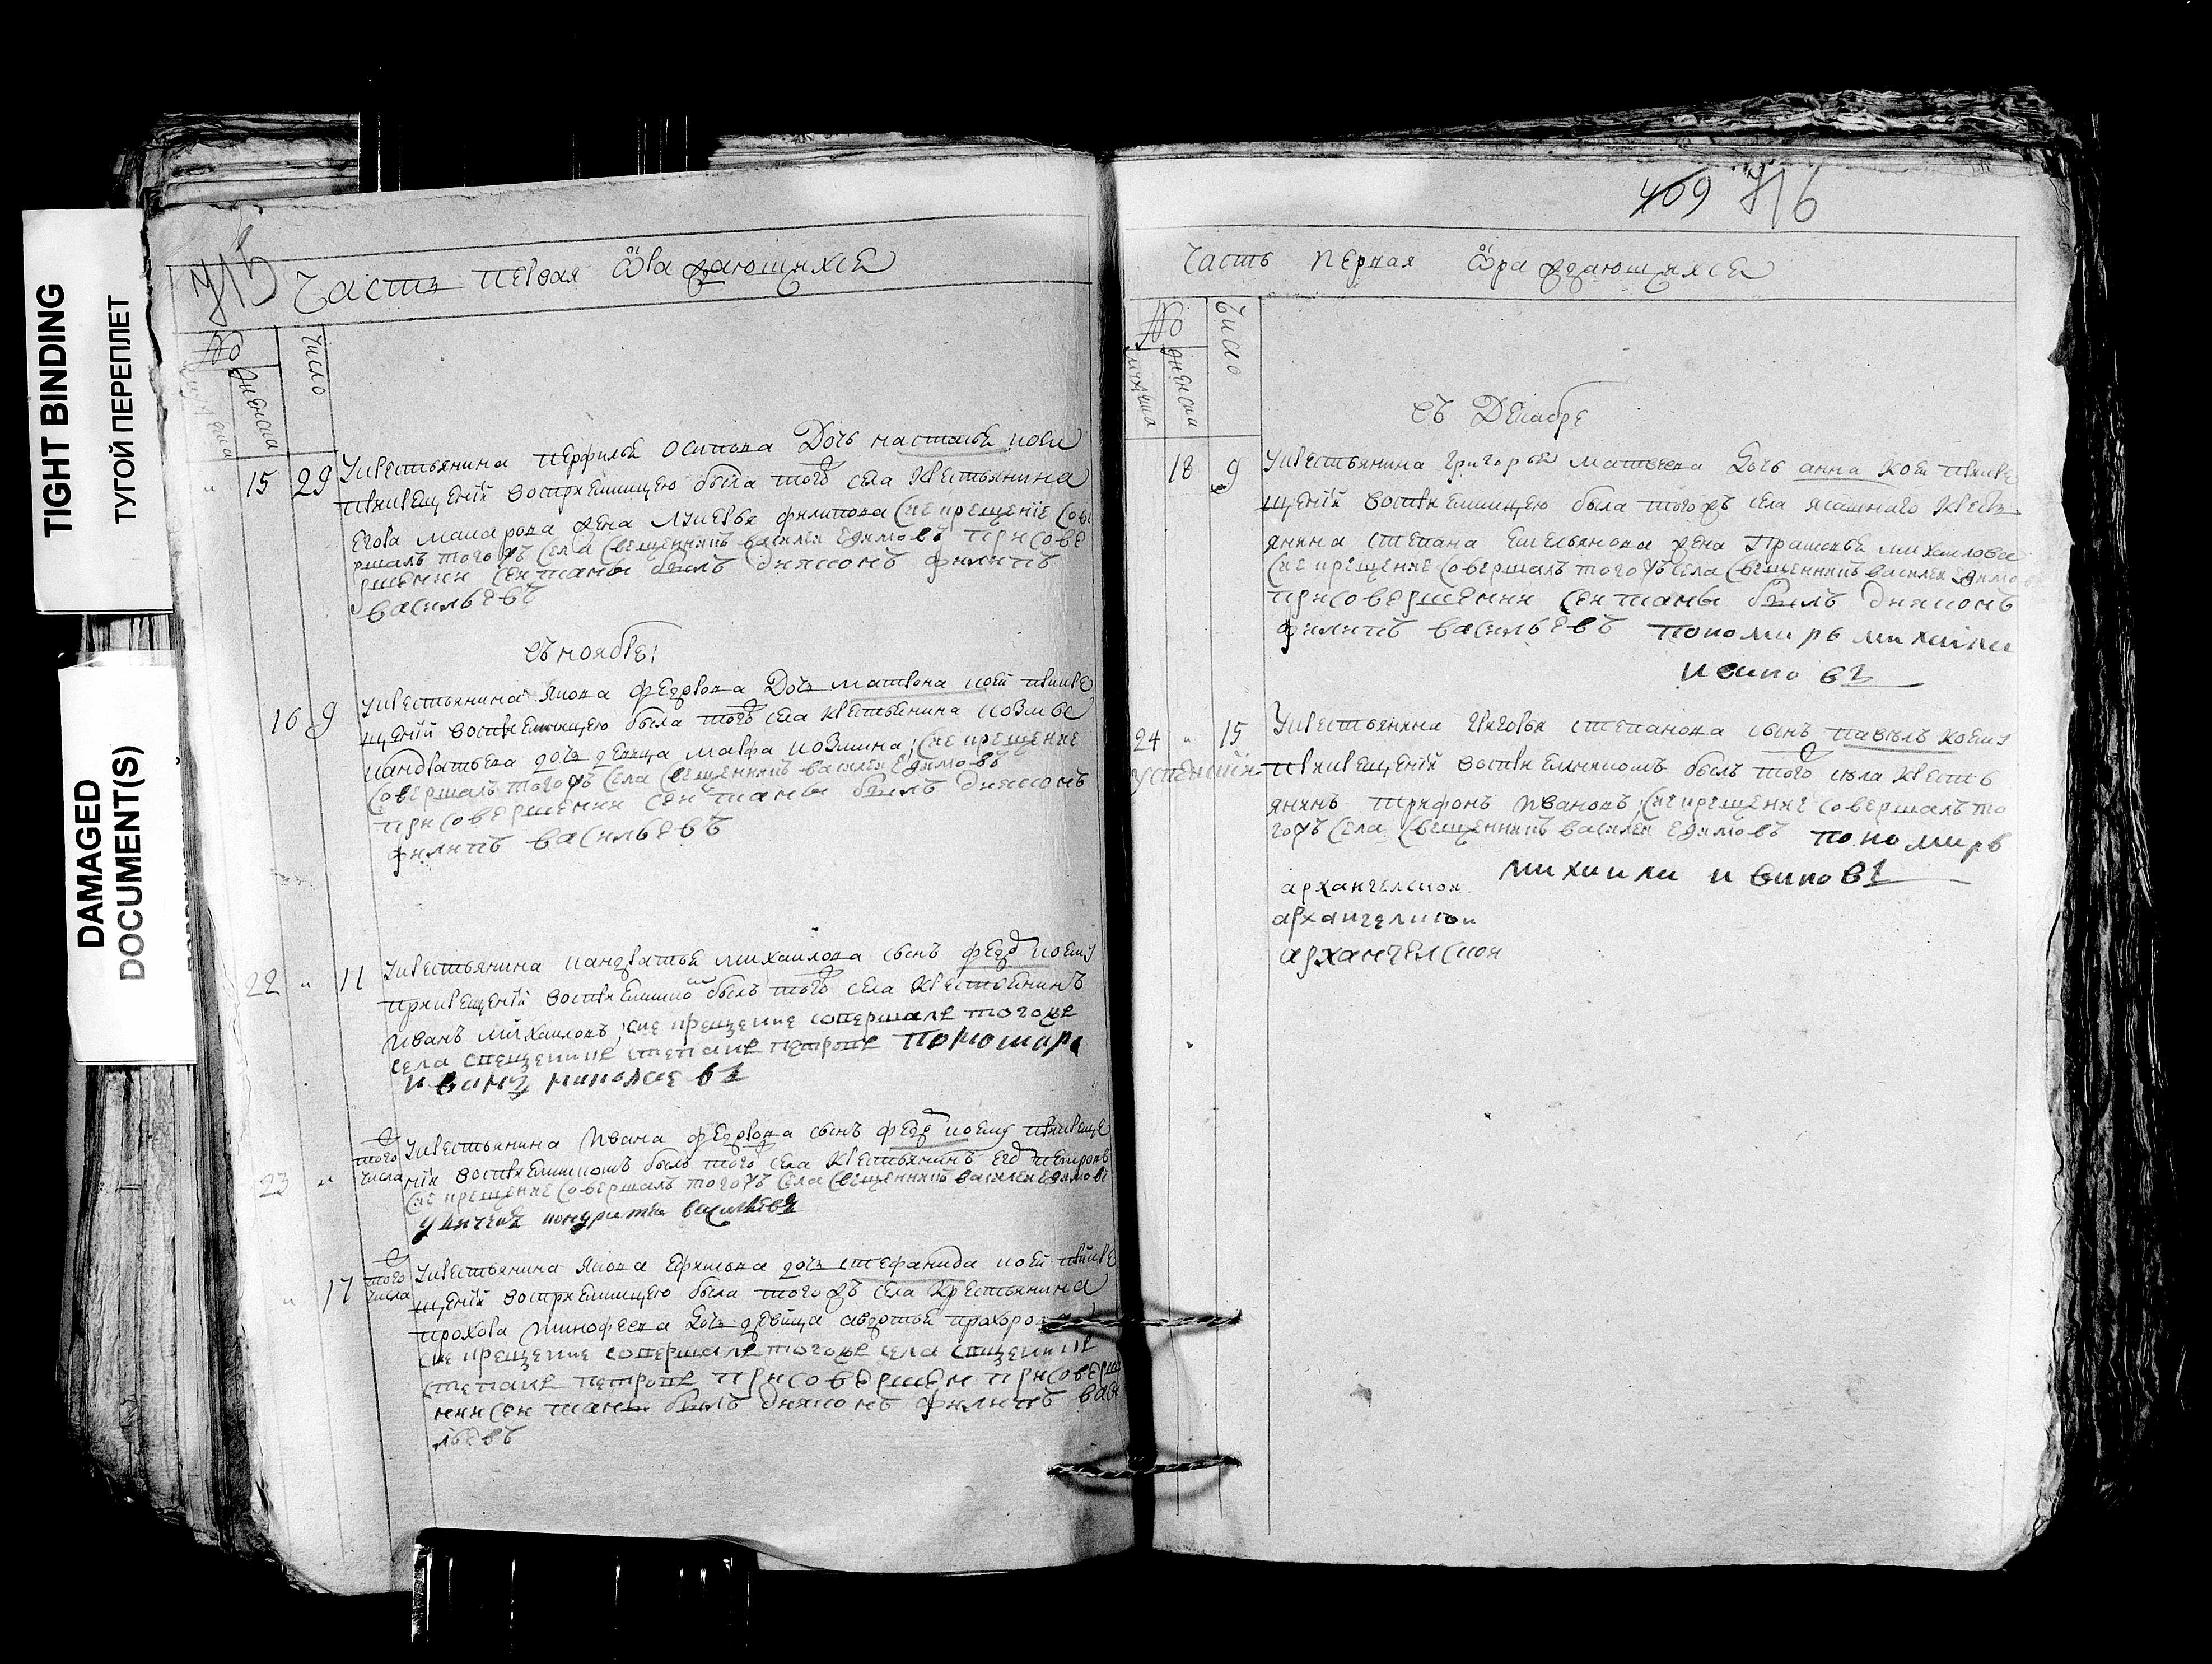 TIGHT BINDING
ТУГОЙ ПЕРЕПЛЕТ
DAMAGED
DOCUMENT(S)
Часть первая ѡраждающихся
№ Число
женска
15 29 Укрестьянина перфилья осипова Дочь насталья коеи
прикрещении восприемницею была тогож села крестьянина
Егора макарова жена лукерья филипова сие крещение сове
ршалъ тогожъ села священникъ василеи Ефимовъ присове
ршении сеи таины былъ дияконъ филипъ
васильевъ
въ ноябре:
16 9 Укрестьянина якова федорова Дочь матрона коеи прикре
щении восприемницею была тогож села крестьянина козмы
кандратьева дочь девица марфа козмина, сие крещение
совершалъ тогожъ села священникъ василеи Ефимовъ
присовершении сеи таины былъ дияконъ
филипъ васильевъ
22 " 11 Укрестьянина кандратья михаилова сынъ федор коему
прикрещении восприемникомъ былъ тогож села крестьянинъ
иванъ михаиловъ, сие крещение совершалъ тогоже
села священникъ степанъ петровъ пономарь
иванъ николаевъ
23 " того числа Укрестьянина ивана федорова сынъ федор коему прикреще
нии восприемникомъ былъ того села крестьянинъ
сие крещение совершалъ тогожъ села священникъ василеи Ефимовъ
дьячекъ кондратеи васильевъ
" 17 того числа Укрестьянина якова Ефимова дочь стефанида коеи прикре
щении восприемницею была тогожъ села крестьянина
прохора тимофеева дочь девица авдотья прохорова
сие крещение совершалъ тогоже села священникъ
степанъ петровъ присовершен присоверш
нии сеи таины былъ дияконъ филипъ васи
льевъ
409 716
Часть первая ѡраждающихся
№ Число
мужеска женска
въ Декабре
18 9 Укрестьянина григорья матвеева Дочь анна коеи прикре
щении восприемницею была тогожъ села ясашнаго кресть
янина степана Емельянова жена прасковья михаилова
сие крещение совершалъ тогожъ села священникъ василеи Ефимовъ
присовершении сеи таины былъ дияконъ
филипъ васильевъ пономарь михаила
ивановъ
24 " 15 Укрестьянина григорья степанова сынъ павелъ коему
прикрещении восприемникомъ былъ тогож села кресть
янинъ трифонъ ивановъ, сие крещение совершалъ то
гожъ села священникъ василеи Ефимовъ пономарь
михаила ивановъ
архангелскои
архангелскои
архангелскои